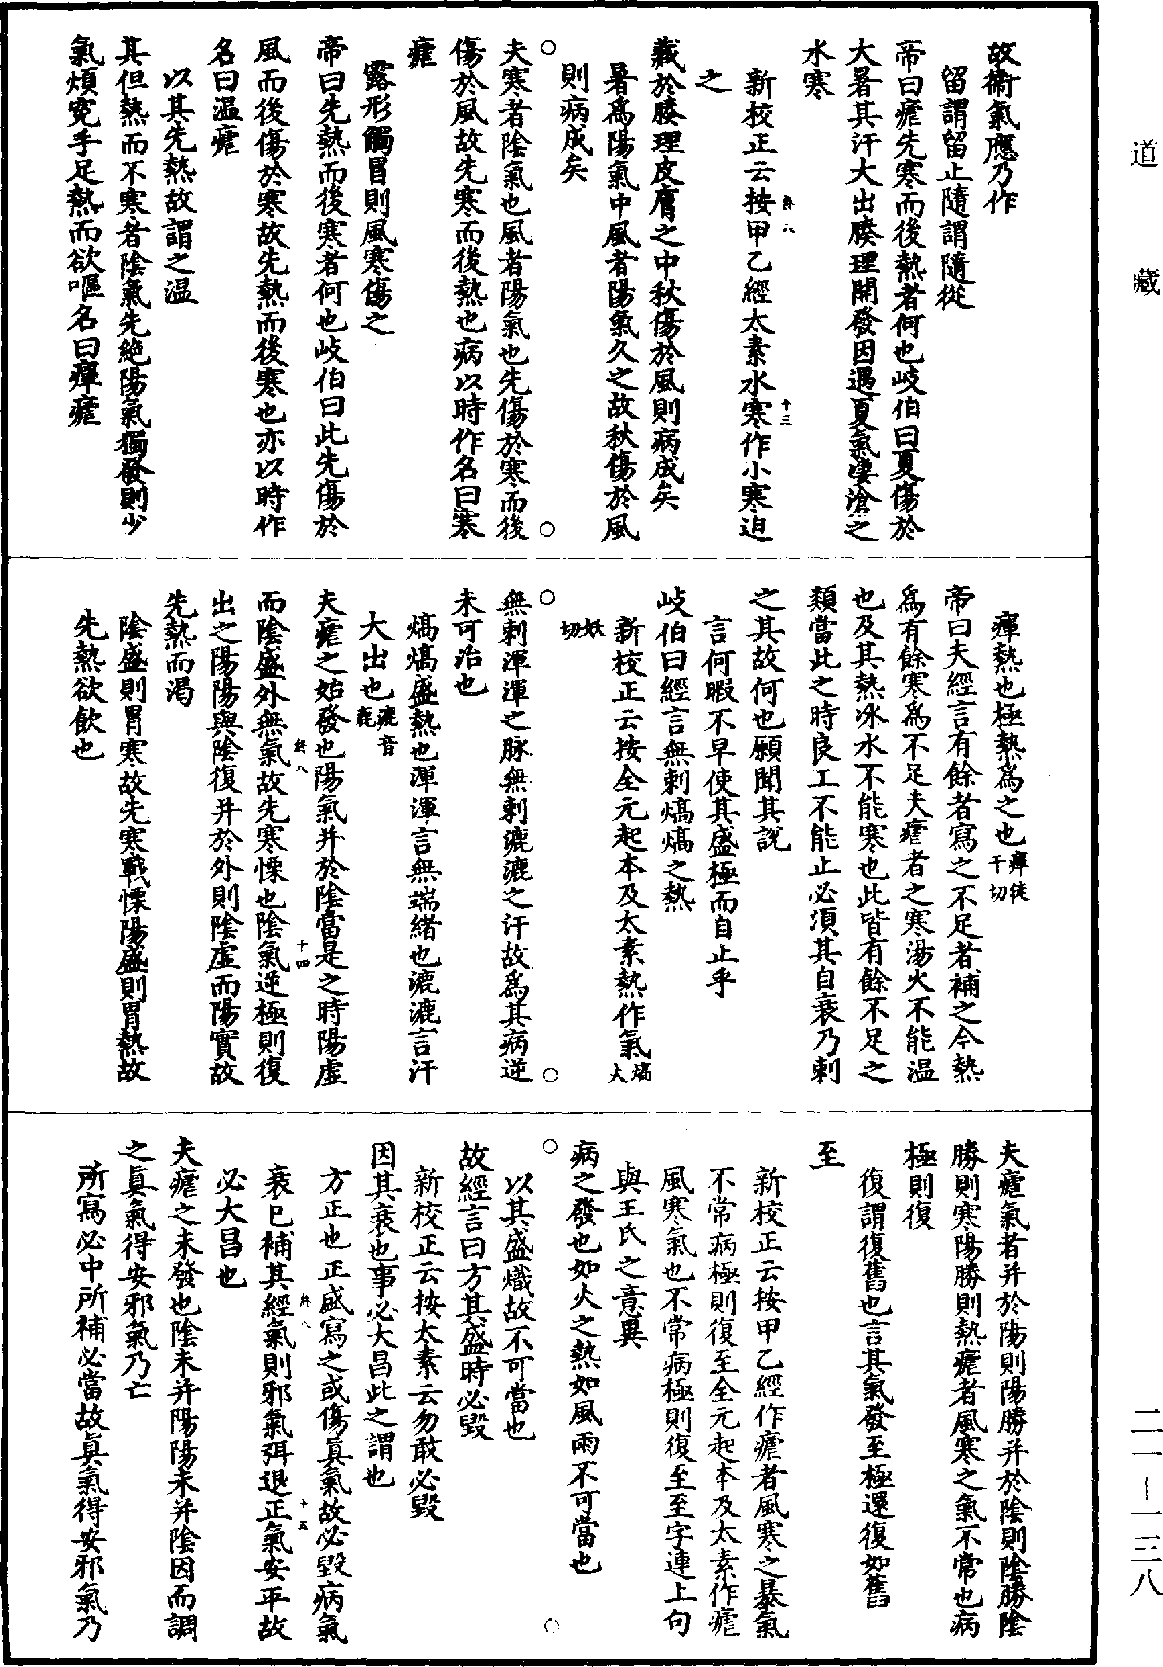 道藏
故衞氣應乃作
留謂留止隨謂隨從
帝曰瘧先寒而後熱者何也岐伯曰夏傷於
大暑其汗大出腠理開發因遇夏氣凄滄之
水寒
新校正云按甲乙經太素水寒作小寒迫
之
藏於腠理皮膚之中秋傷於風則病成矣
暑爲陽氣中風者陽氣久之故秋傷於風
則病成矣
夫寒者陰氣也風者陽氣也先傷於寒而後
傷於風故先寒而後熱也病以時作名曰寒
瘧
露形觸冒則風寒傷之
帝曰先熱而後寒者何也岐伯曰此先傷於
風而後傷於寒故先熱而後寒也亦以時作
名曰温瘧
以其先熱故謂之温
其但熱而不寒者陰氣先絶陽氣獨發則少
氣煩寃手足熱而欲嘔名曰癉瘧
癉熱也極熱爲之也癉徒干切
帝曰夫經言有餘者寫之不足者補之今熱
爲有餘寒爲不足夫瘧者之寒湯火不能温
也及其熱冰水不能寒也此皆有餘不足之
類當此之時良工不能止必須其自衰乃刺
之其故何也願聞其說
言何暇不早使其盛極而自止乎
岐伯曰經言無刺熇熇之熱
新校正云按全元起本及太素熱作氣熇火
妖切
無刺渾渾之脉無刺漉漉之汗故爲其病逆
未可治也
熇熇盛熱也渾渾言無端緒也漉漉言汗
大出也漉音鹿
夫瘧之始發也陽氣并於陰當是之時陽虛
而陰盛外無氣故先寒慄也陰氣逆極則復
出之陽陽與陰復并於外則陰虛而陽實故
先熱而渴
陰盛則胃寒故先寒戰慄陽盛則胃熱故
先熱欲飲也
夫瘧氣者并於陽則陽勝并於陰則陰勝陰
勝則寒陽勝則熱瘧者風寒之氣不常也病
極則復
復謂復舊也言其氣發至極還復如舊
至
新校正云按甲乙經作瘧者風寒之暴氣
不常病極則復至全元起本及太素作瘧
風寒氣也不常病極則復至至字連上句
與王氏之意異
病之發也如火之熱如風雨不可當也
以其盛熾故不可當也
故經言曰方其盛時必毀
新校正云按太素云勿敢必毀
因其衰也事必大昌此之謂也
方正也正盛寫之或傷真氣故必毀病氣
衰已補其經氣則邪氣弭退正氣安平故
必大昌也
夫瘧之未發也陰未并陽陽未并陰因而調
之真氣得安邪氣乃亡
所寫必中所補必當故真氣得安邪氣乃
二一-一三八